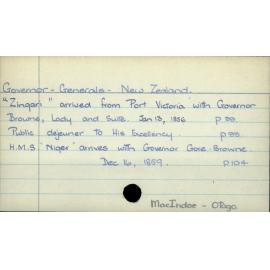 Governor-Generals - New Zealand.
"Zingari" arrived from Port Victoria with Governor
Browne, Lady and Suite. Jan 13, 1856 p 88.
Public dejeuner to His Excellency. p 88.
H.M.S. "Niger" arrives with Governor Gore Browne.
Dec 16, 1859. p 104
MacIndoe - Otago.